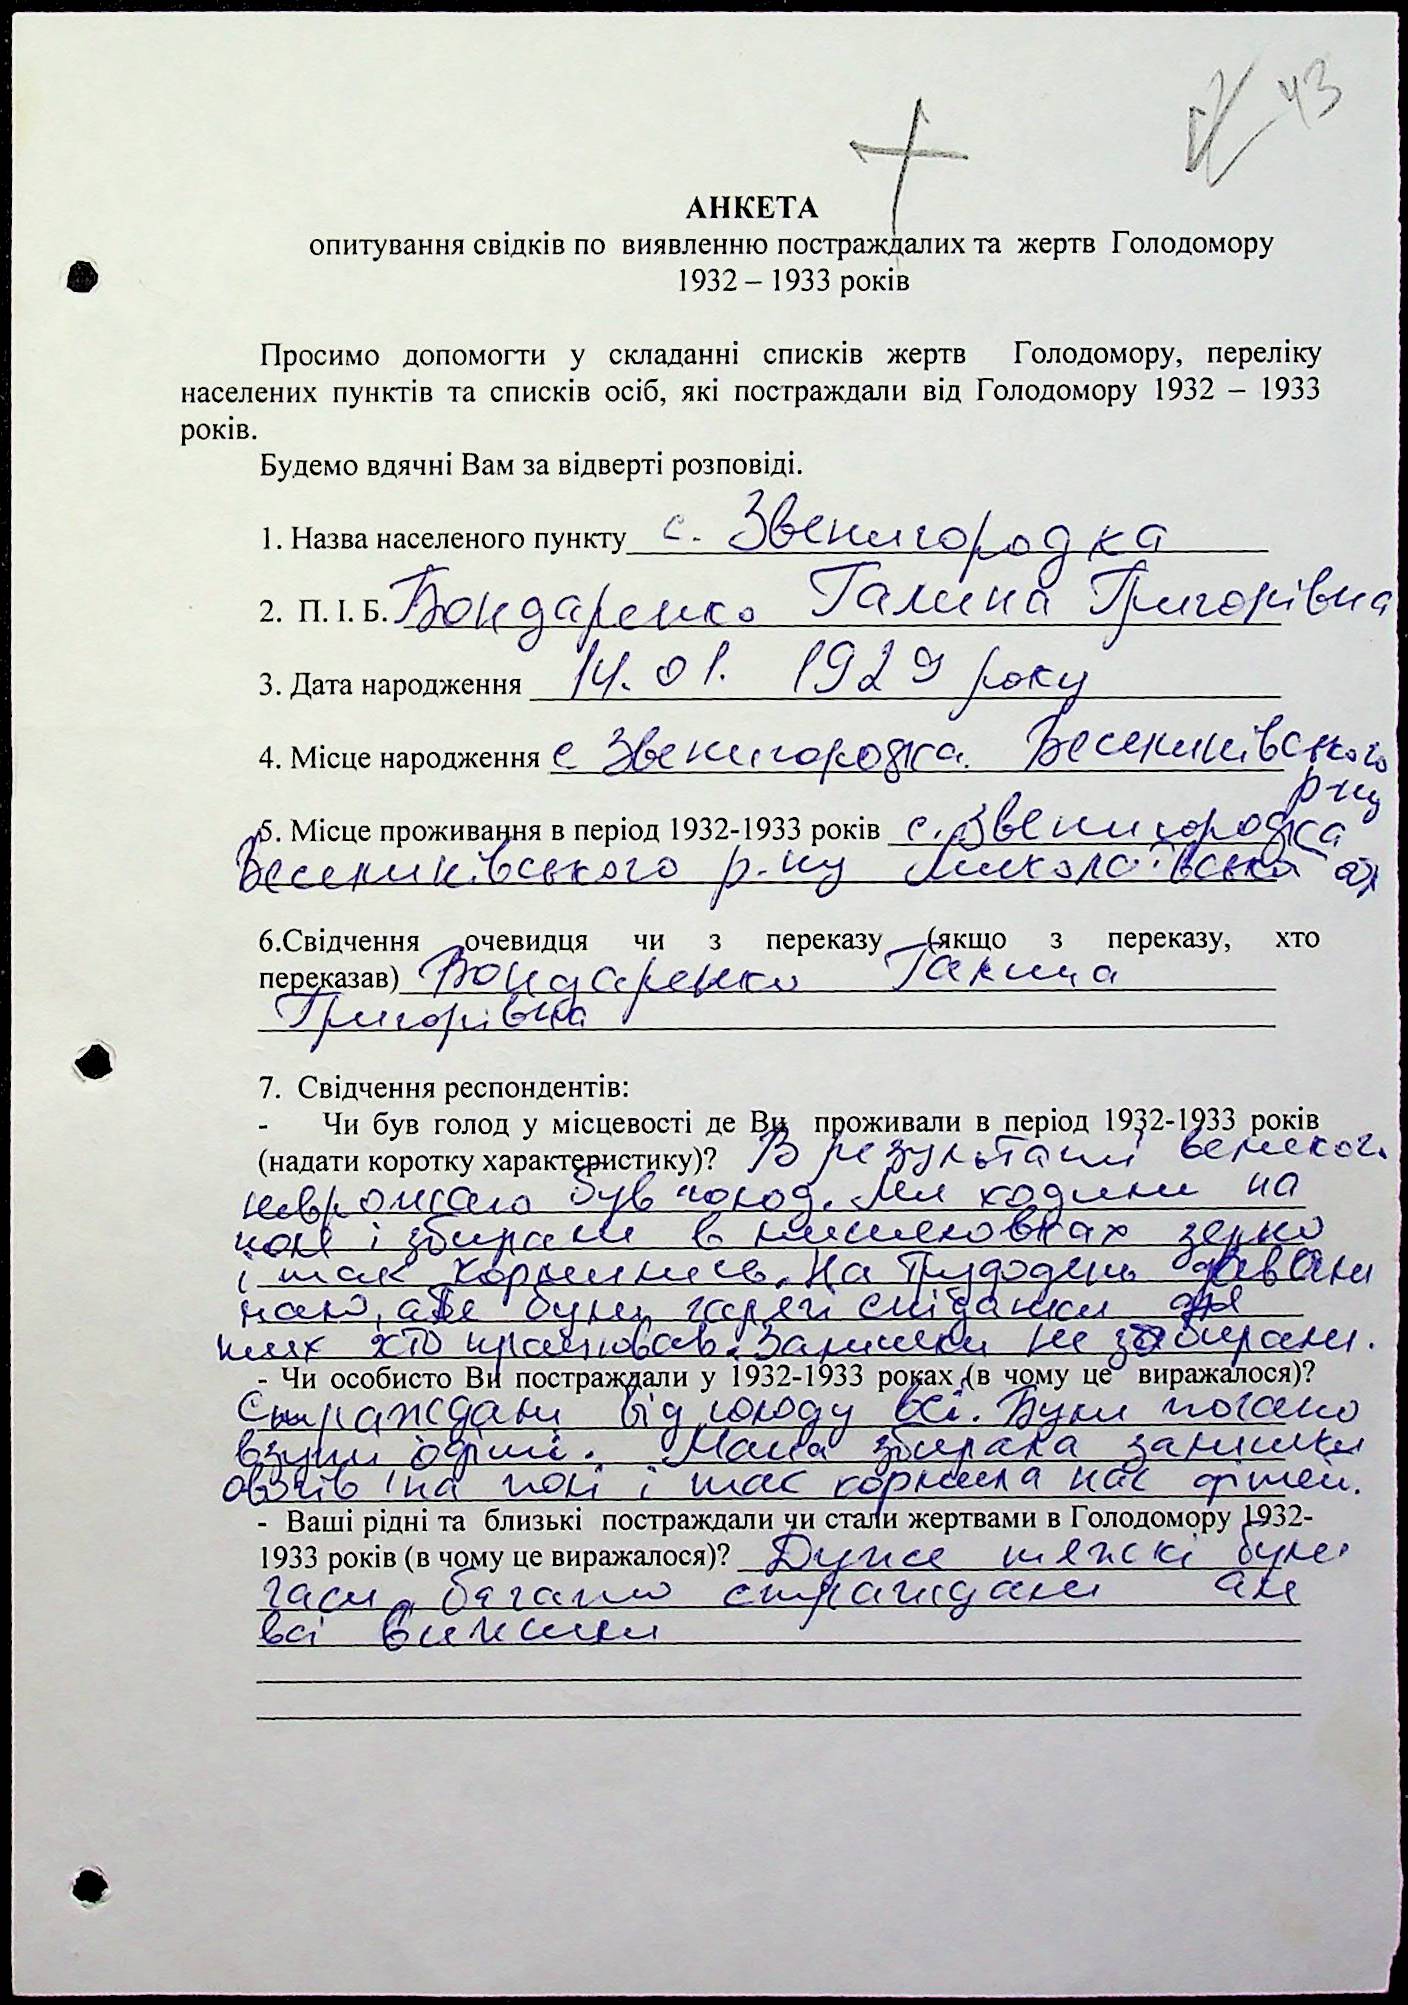 43
АНКЕТА
опитування свідків по виявленню постраждалих та жертв Голодомору
1932 – 1933 років
Просимо допомогти у складанні списків жертв Голодомору, переліку
населених пунктів та списків осіб, які постраждали від Голодомору 1932 – 1933
років.
Будемо вдячні Вам за відверті розповіді.
1. Назва населеного пункту с. Звенигородка
2. П. І. Б. Бондаренко Галина Григорівна
3. Дата народження 14.01. 1929 року
4. Місце народження с Звенигородка Веселинівського
р-ну
5. Місце проживання в період 1932-1933 років с. Звенигородка
Веселинівського р-ну Миколаївська обл
6.Свідчення очевидця чи з переказу (якщо з переказу, хто
переказав) Бондаренко Галина
Григорівна
7. Свідчення респондентів:
- Чи був голод у місцевості де Ви проживали в період 1932-1933 років
(надати коротку характеристику)? В результаті великого
неврожаю був голод. Ми ходили на
поле і збирали в зерно
і так кормились. На трудодень давали
мало, але були гарячі сніданки для
тих хто працював. Залишки не забирали.
- Чи особисто Ви постраждали у 1932-1933 роках (в чому це виражалося)?
Страждали від голоду всі. Були погано
взуті одіті. Мама збирала залишки
овочів на полі і так кормила нас дітей.
- Ваші рідні та близькі постраждали чи стали жертвами в Голодомору 1932-
1933 років (в чому це виражалося)? Дуже тяжкі були
часи, багато страждали али
всі вижили